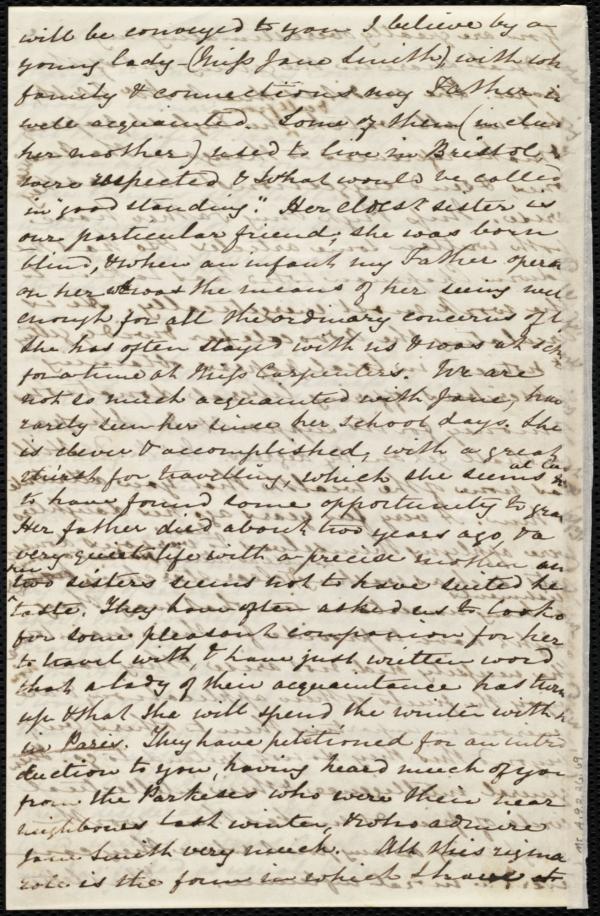 will be conveyed to you I believe by a
young lady - (Miss Jane Smith) with wh
family & connections my Father is
well acquainted. Some of them (inclu
her mother) used to live in Bristol,
were respected & what would be called
in "good standing." Her eldest sister is
our particular friend, she was born
blind, & when an infant my Father opera
on her & was the means of her seeing well
enough for all the ordinary concerns of l
She has often stayed with us & was at sch
for a time at Miss Carpenter's. We are
not so much acquainted with Jane, hav
rarely seen her since her school days. She
is clever & accomplished, with a great
thirst for travelling, which she seems at las
to have found some opportunity to gra
Her father died about two years ago, & a
very quiet life with a precise mother an
her two sisters seems not to have suited he
taste. They have often asked us to look o
for some pleasant companion for her
to travel with, & have just written word
that a lady of their acquaintance has turn
up & that she will spend the winter with h
in Paris. They have petitioned for an intro
duction to you, having heard much of you
from the Parkeses who were their near
neighbours last winter, & who admire
Jane Smith very much. All this rigma
role is the form in which I have at
Ms.A.9.2.26.69